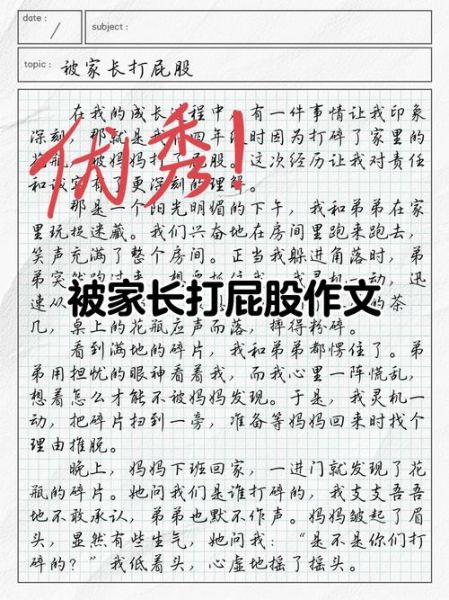 date :
subject :
/
topic : 被家长打屁股
在我的成长过程中，有一件事情让我印象
深刻，那就是我四年级时因为打碎了家里的
花瓶，被妈妈打了屁股。这次经历让我对责任
和诚实有了更深刻的理解。
优秀!
那是一个阳光明媚的下午，我和弟弟在家
里玩捉迷藏。我们兴奋地在房间里跑来跑去，
笑声充满了整个房间。正当我躲进角落时，弟
弟突然跑过来，想要抓住我，我灵机一动，迅
速从
的茶
被家长打屁股作文
几，桌上的花瓶应声而落，摔得粉碎。
看到满地的碎片，我和弟弟都愣住了。弟
弟用担忧的眼神看着我，而我心里一阵慌乱，
想着怎么才能不被妈妈发现。于是，我灵机一
动，把碎片扫到一旁，准备等妈妈回来时找个
理由推脱。
晚上，妈妈下班回家，一进门就发现了花
瓶的碎片。她问我们是谁打碎的，我支支吾吾
地不敢承认，弟弟也默不作声。妈妈皱起了眉
头，显然有些生气，她问我：“是不是你们打
碎的？”我低着头，心虚地摇了摇头。